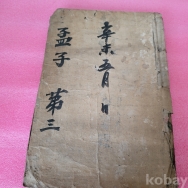 辛未五月 日
孟子 第三
kobay